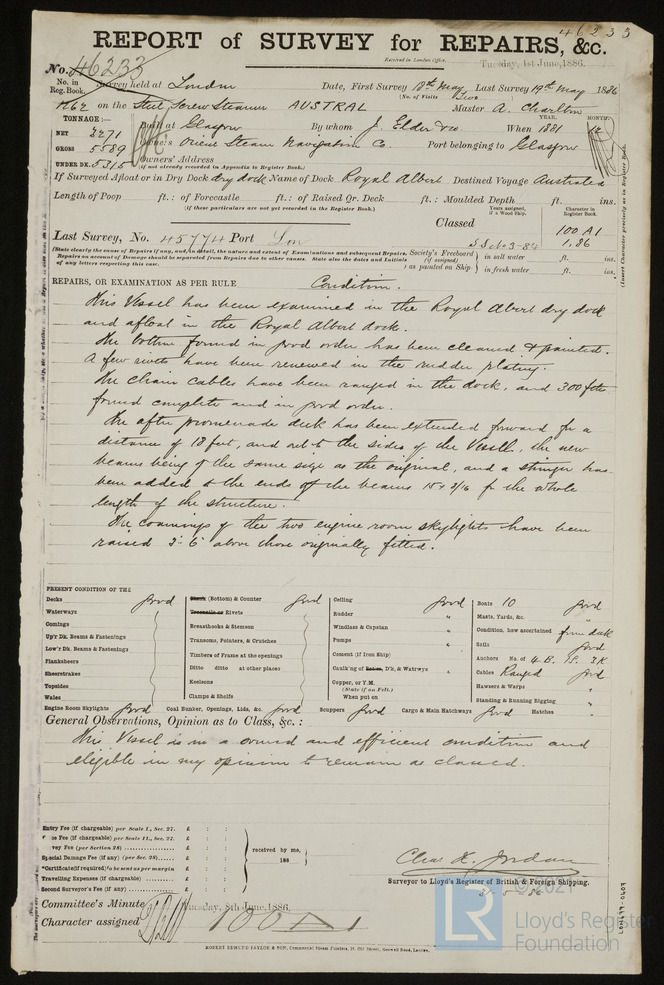 46233
REPORT of SURVEY for REPAIRS, &c.
Received in London Office, Tuesday, 1st June, 1886.
No. 46233
No. in Reg. Book. Survey held at London Date, First Survey 18th May Last Survey 19th May 1886
(No. of Visits Five
1262 on the Steel Screw Steamer AUSTRAL Master A. Charlton
TONNAGE:— Built at Glasgow By whom J. Elder & Co. When YEAR. 1881 MONTH. 12
NET 3271
GROSS 5589 Owners Orient Steam Navigation Co. Port belonging to Glasgow
UNDER DK. 5315 Owners' Address
(if not already recorded in Appendix to Register Book.)
If Surveyed Afloat or in Dry Dock dry dock Name of Dock Royal Albert Destined Voyage Australia
Length of Poop ft.: of Forecastle ft.: of Raised Qr. Deck ft.: Moulded Depth ft. ins.
(If these particulars are not yet recorded in the Register Book.)
Years assigned, if a Wood Ship. Character in Register Book.
Classed 100 A1
Last Survey, No. 45774 Port Lon 1.86
Society's Freeboard (if assigned) as painted on Ship in salt water ft. ins.
in fresh water ft. ins.
REPAIRS, OR EXAMINATION AS PER RULE Condition.
This Vessel has been examined in the Royal Albert dry dock
and afloat in the Royal Albert dock.
The bottom found in good order has been cleaned & painted.
A few rivets have been renewed in the rudder plating.
The chain cables have been ranged in the dock, and 300 fths
found complete and in good order.
The after promenade deck has been extended forward for a
distance of 18 feet, and out to the sides of the Vessel, the new
beams being of the same size as the original, and a stringer has
been added to the ends of the beams 15 x 3/16 for the whole
length of the structure.
The coamings of the two engine room skylights have been
raised 3'-6" above those originally fitted.
PRESENT CONDITION OF THE
Decks good
Waterways
Comings
Up'r Dk. Beams & Fastenings
Low'r Dk. Beams & Fastenings
Planksheers
Sheerstrakes
Topsides
Wales
Engine Room Skylights good
(Bottom) & Counter good
Rivets
Breasthooks & Stemson
Transoms, Pointers, & Crutches
Timbers of Frame at the openings
Ditto ditto at other places
Keelsons
Clamps & Shelfs
Coal Bunker, Openings, Lids, &c. good
Ceiling good
Rudder "
Windlass & Capstan "
Pumps "
Cement (if Iron Ship) "
Caulk'ng of D'k, & Watrwys "
Copper, or Y.M.
(State if on Felt.)
When put on
Scuppers good Cargo & Main Hatchways good
Boats 10 good
Masts, Yards, &c. "
Condition, how ascertained from deck
Sails good
Anchors No. of 4 B. 1S. 2K
Cables Ranged good
Hawsers & Warps "
Standing & Running Rigging "
Hatches "
General Observations, Opinion as to Class, &c.:
This Vessel is in a sound and efficient condition and
eligible in my opinion to remain as classed.
Entry Fee (if chargeable) per Scale I., Sec. 27. £ : :
Fee (if chargeable) per Scale II., Sec. 27. £ : :
Survey Fee (per Section 28) £ : :
Special Damage Fee (if any) (per Sec. 28) £ : :
*Certificate (if required) to be sent as per margin
Travelling Expenses (if chargeable) £ : :
Second Surveyor's Fee (if any) £ : :
received by me,
188
Chas K. Jordan
Surveyor to Lloyd's Register of British & Foreign Shipping.
Committee's Minute Tuesday, 8th June, 1886.
Character assigned 100 A 1
ROBERT EDMUND TAYLOR & SON, Commercial Steam Printers, 19, Old Street, Goswell Road, London.
LR
© 2021
Lloyd's Register
Foundation